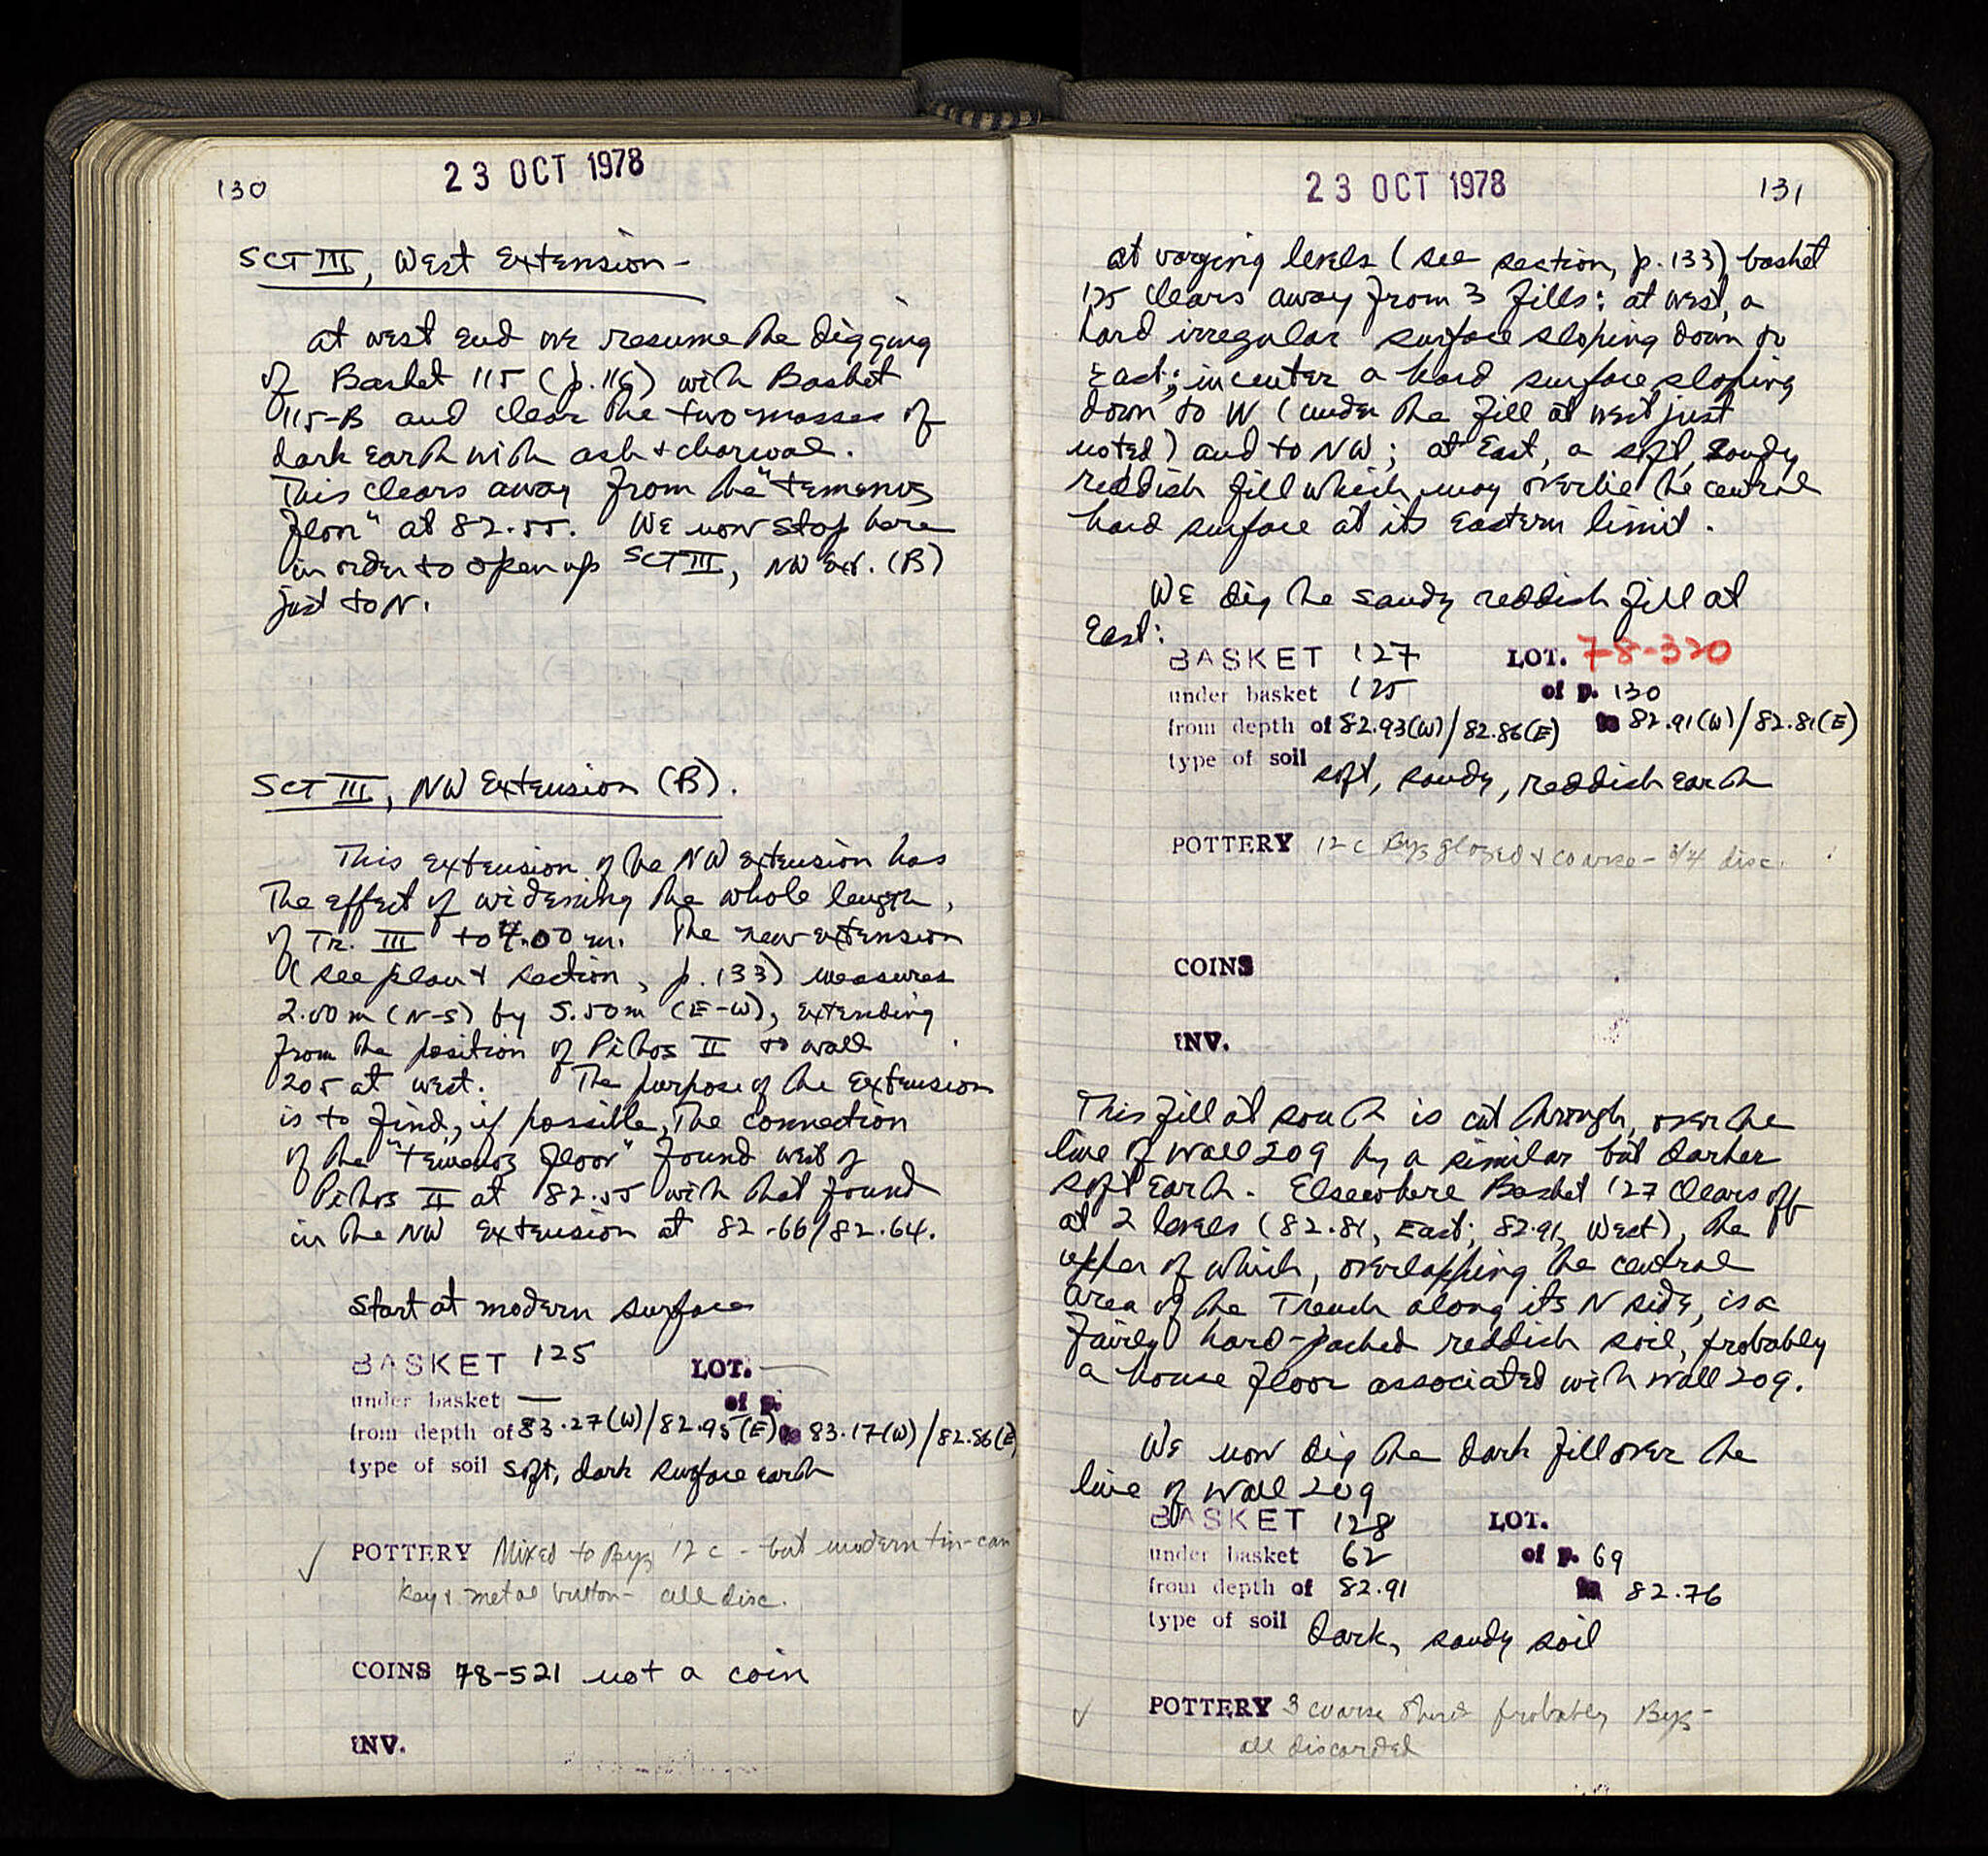 130
23 OCT 1978
SCT III, West Extension -
at west end we resume the digging
of Basket 115 (p. 116) with Basket
115-B and clear the two masses of
dark earth with ash + charcoal.
This clears away from the "temenos
floor" at 82.55. We now stop here
in order to open up SCT III, NW Ext. (B)
just to N.
SCT III, NW Extension (B).
This extension of the NW extension has
the effect of widening the whole length,
of Tr. III to 4.00 m. The new extension
(see plan + section, p. 133) measures
2.00 m (N-S) by 5.50 m (E-W), extending
from the position of Pithos II to wall
205 at west. The purpose of the extension
is to find, if possible, the connection
of the "temenos floor" found west of
Pithos II at 82.55 with that found
in the NW extension at 82.66/82.64.
Start at modern surface
BASKET 125 LOT. —
under basket — of p.
from depth of 83.27(W)/82.95(E) to 83.17(W)/82.86(E)
type of soil soft, dark surface earth
✓ POTTERY Mixed to Byz 12 c - but modern tin-can
key + metal button - all disc.
COINS 78-521 not a coin
INV.
23 OCT 1978
131
at varying levels (see section, p. 133) basket
125 clears away from 3 fills: at west, a
hard irregular surface sloping down to
East; in center a hard surface sloping
down to W (under the fill at west just
noted) and to NW; at East, a soft, sandy
reddish fill which may overlie the central
hard surface at its Eastern limit.
We dig the sandy reddish fill at
East:
BASKET 127 LOT. 78-320
under basket 125 of p. 130
from depth of 82.93(W)/82.86(E) to 82.91(W)/82.81(E)
type of soil soft, sandy, reddish earth
POTTERY 12 c Byz glazed + coarse - 3/4 disc.
COINS
INV.
This fill at south is cut through, over the
line of wall 209 by a similar but darker
soft earth. Elsewhere Basket 127 clears off
at 2 levels (82.81, East; 82.91, West), the
upper of which, overlapping the central
area of the Trench along its N side, is a
fairly hard-packed reddish soil, probably
a house floor associated with wall 209.
We now dig the dark fill over the
line of wall 209
BASKET 128 LOT.
under basket 62 of p. 69
from depth of 82.91 to 82.76
type of soil Dark, sandy soil
✓ POTTERY 3 coarse sherds probably Byz -
all discarded